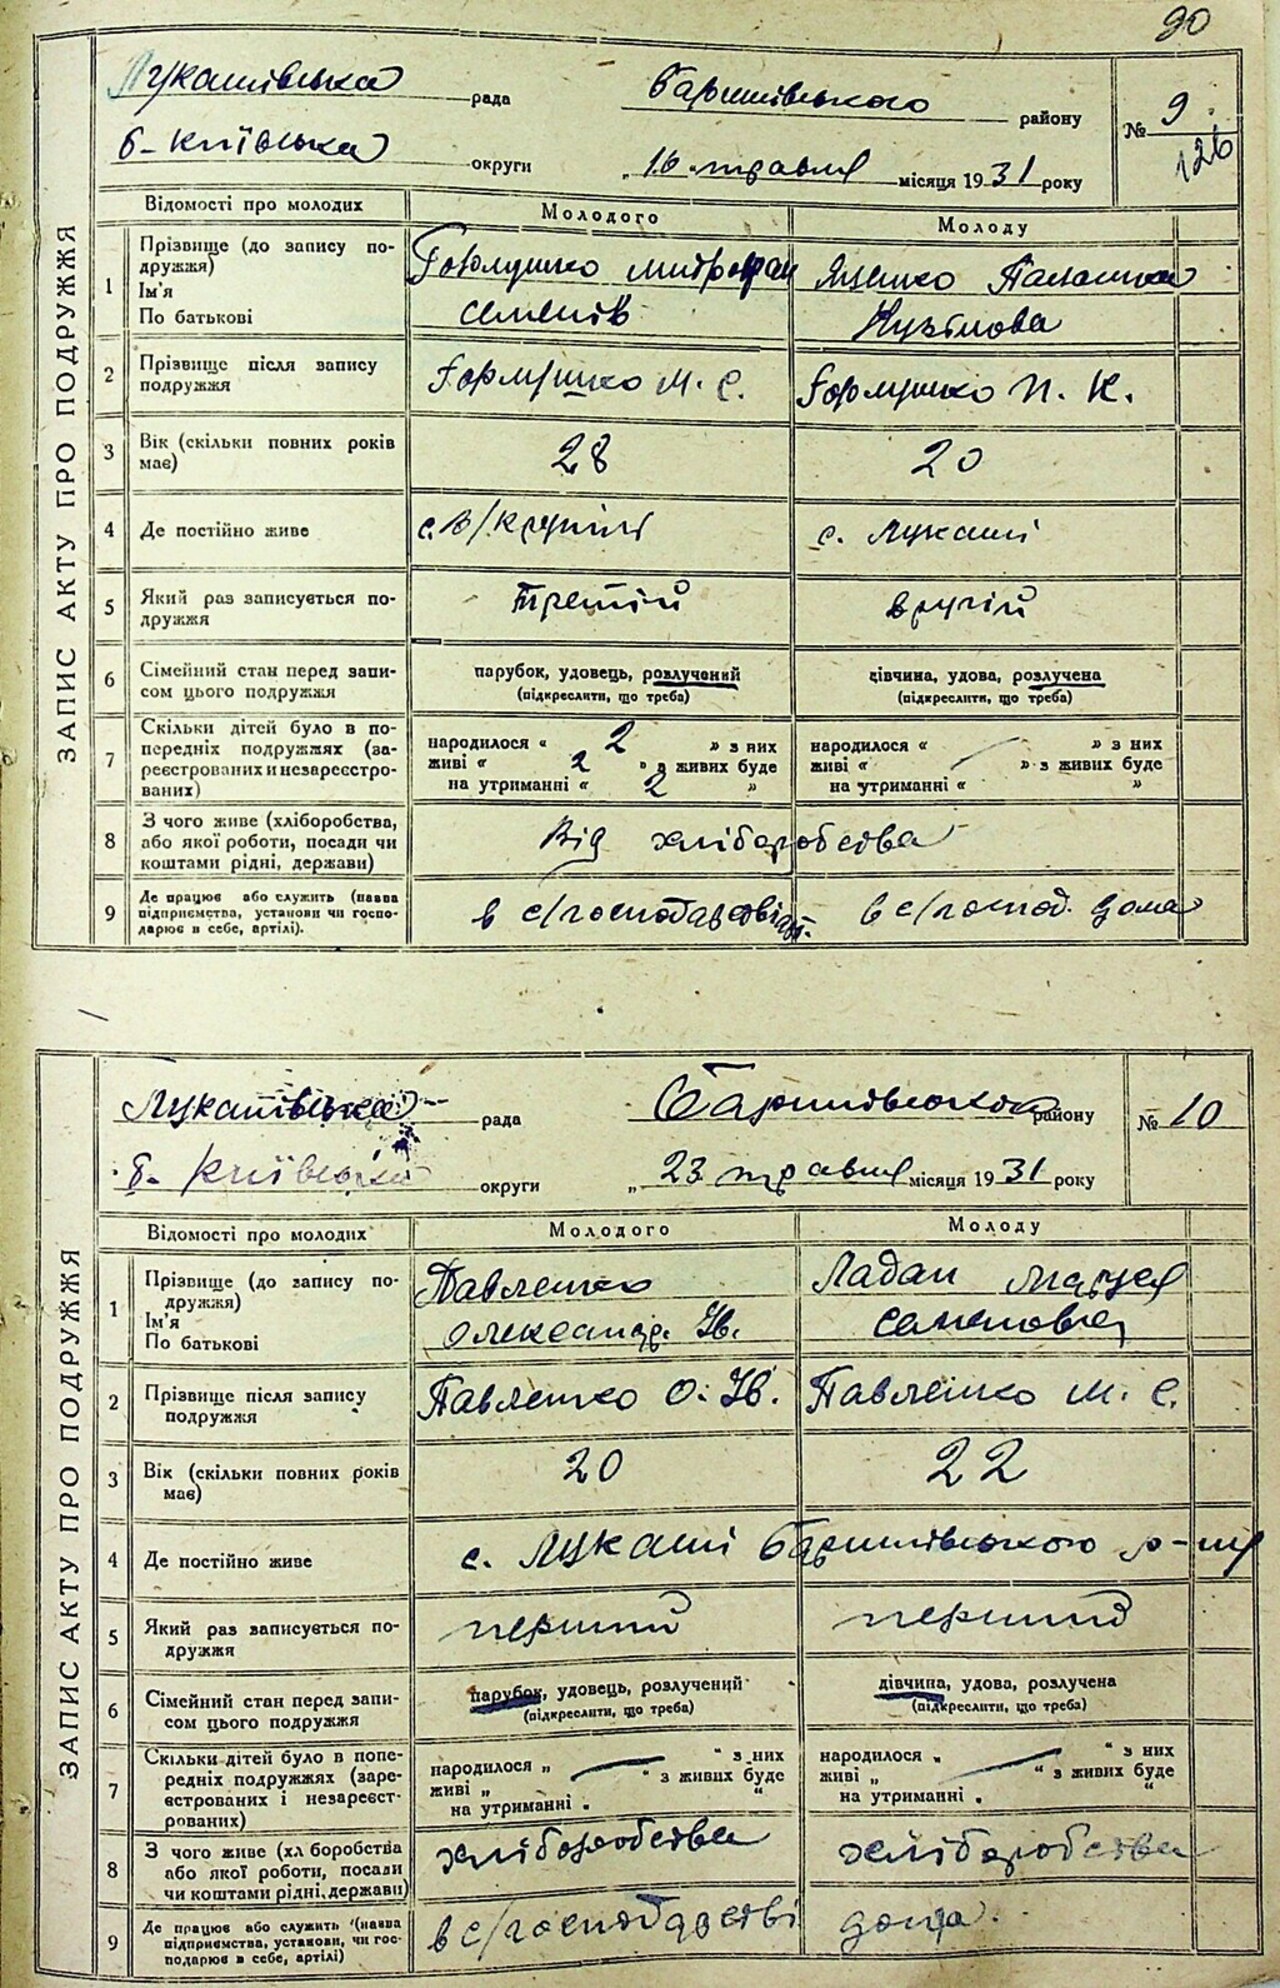 90
ЗАПИС АКТУ ПРО ПОДРУЖЖЯ
Лукашівська рада Баришівського району № 9
126
б- Київська округи „16 „ травня місяця 1931 року
Відомості про молодих Молодого Молоду
1 Прізвище (до запису подружжя) Митрофан Яценко
Ім'я
По батькові Семенів Кузьмова
2 Прізвище після запису подружжя М. С. П. К.
3 Вік (скільки повних років має) 28 20
4 Де постійно живе с. В/Крупіль с. Лукаші
5 Який раз записується подружжя Третій вругій
6 Сімейний стан перед записом цього подружжя парубок, удовець, розлучений дівчина, удова, розлучена
(підкреслити, що треба) (підкреслити, що треба)
7 Скільки дітей було в попередніх подружжях (зареєстрованих и незареєстрованих) народилося « 2 » з них народилося « — » з них
живі « 2 » з живих буде живі « » з живих буде
на утриманні « 2 » на утриманні « »
8 З чого живе (хліборобства, або якої роботи, посади чи коштами рідні, держави) Від хліборобства
9 Де працює або служить (назва підприємства, установи чи господарює в себе, артілі). в с/господарстві в с/господ. дома
ЗАПИС АКТУ ПРО ПОДРУЖЖЯ
Лукашівська рада Баришівського району № 10
б- Київська округи „ 23 травня місяця 1931 року
Відомості про молодих Молодого Молоду
1 Прізвище (до запису подружжя) Павленко Ладан
Ім'я
По батькові Олександр. Ів. Семеновна
2 Прізвище після запису подружжя Павленко О. Ів. Павленко М. С.
3 Вік (скільки повних років має) 20 22
4 Де постійно живе с. Лукаші Баришівського р-ну
5 Який раз записується подружжя перший перший
6 Сімейний стан перед записом цього подружжя парубок, удовець, розлучений дівчина, удова, розлучена
(підкреслити, що треба) (підкреслити, що треба)
7 Скільки дітей було в попередніх подружжях (зареєстрованих і незареєстрованих) народилося „ — “ з них народилося „ — “ з них
живі „ “ з живих буде живі „ “ з живих буде
на утриманні „ “ на утриманні „ “
8 З чого живе (хл боробства або якої роботи, посади чи коштами рідні, держави) хліборобства хліборобства
9 Де працює або служить (назва підприємства, установи, чи господарює в себе, артілі) в с/господарстві дома.